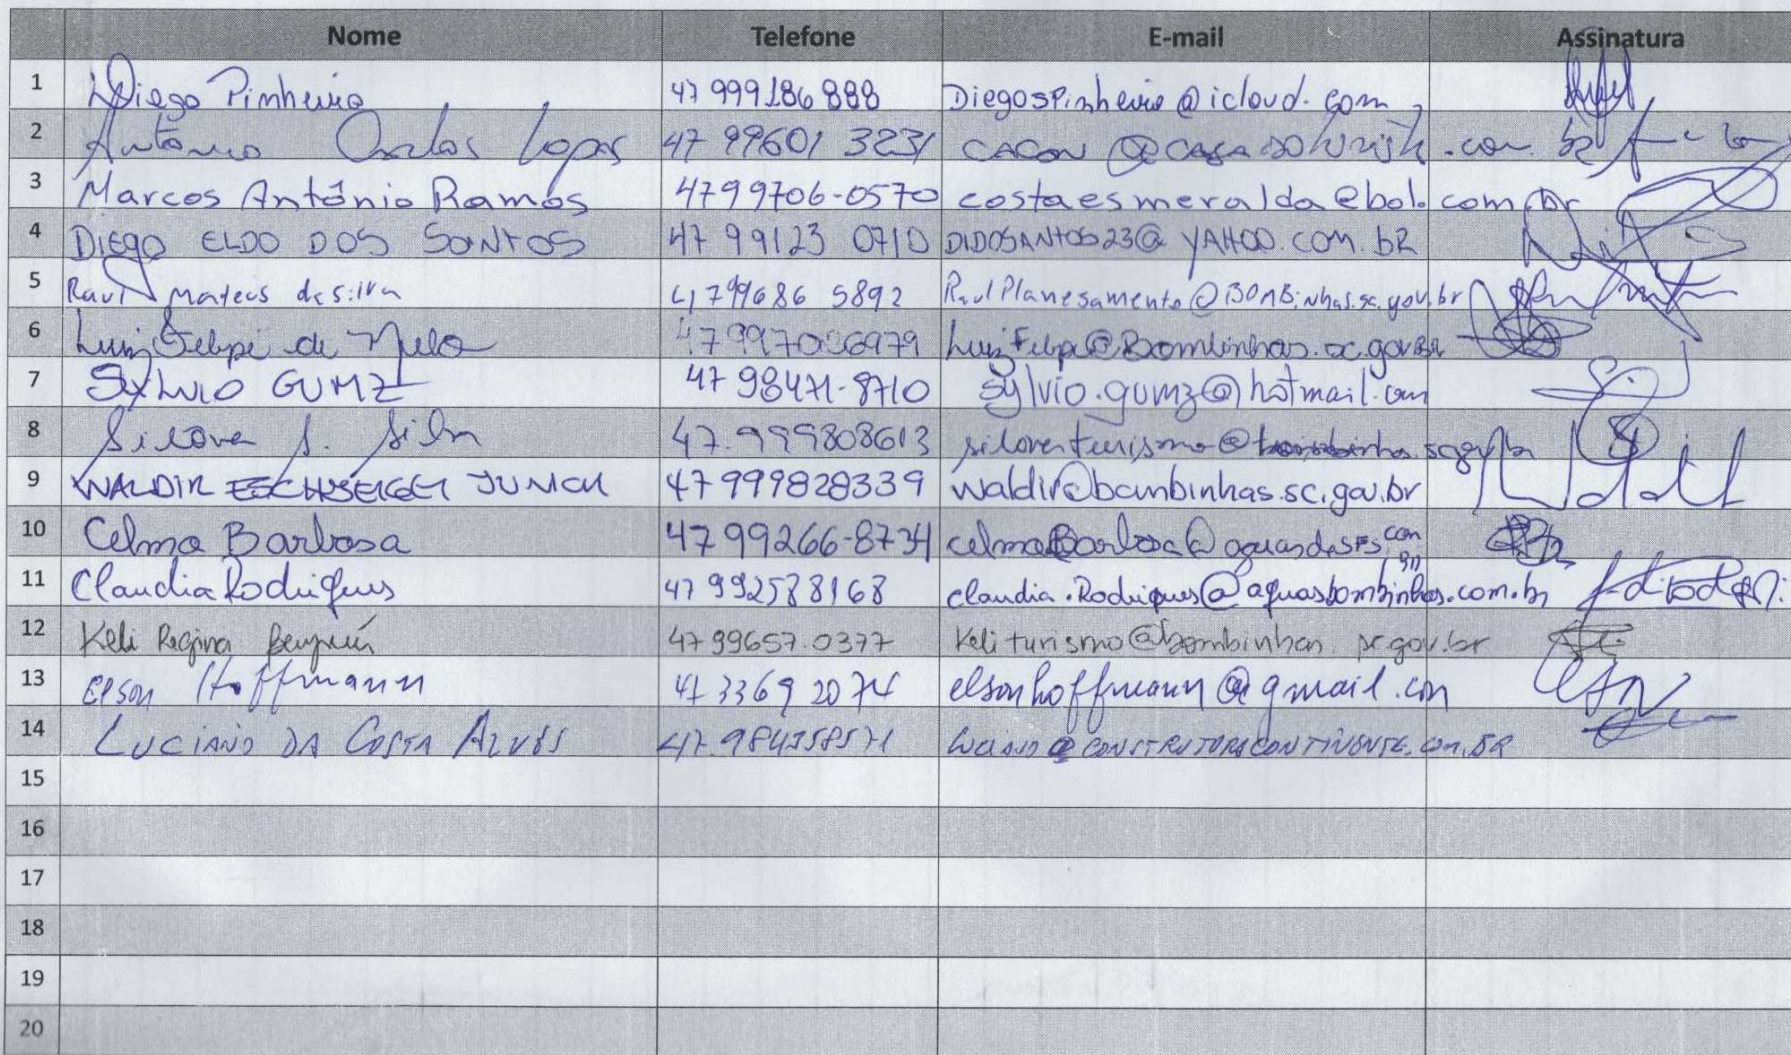 Nome Telefone E-mail Assinatura
1 Diego Pinheiro 47 999186 888 Diegospinheiro@icloud.com
2 Antônio Carlos Lopes 47 99601 3231 .com.br
3 Marcos Antônio Ramos 4799706-0570 costaesmeralda@bol.com.br
4 DIEGO ELDO DOS SANTOS 47 99123 0710 DIDOSANTOS23@YAHOO.COM.BR
5 Raul Mateus da silva 4799686 5892 RaulPlanejamento@BOMBinhas.sc.gov.br
6 Luiz Felipe de Melo LuizFelipe@Bombinhas.sc.gov.BR
7 SYLVIO GUMZ 47 98471-8710 sylvio.gumz@hotmail.com
8 Silva 47.999808613
9 WALDIR JUNIOR 47999828339 waldir@bombinhas.sc.gov.br
10 Celma Barbosa 47 99266-8734
11 Claudia Rodrigues 47 992588168 claudia.Rodrigues@aguasbombinhas.com.br
12 Keli Regina 47 99657.0377 Keliturismo@bombinhas.sc.gov.br
13 Elson Hoffmann 47 3369 2074 elsonhoffmann@gmail.com
14 LUCIANO DA COSTA ALVES LUCIANO@CONSTRUTORACONTINENTE.COM.BR
15
16
17
18
19
20